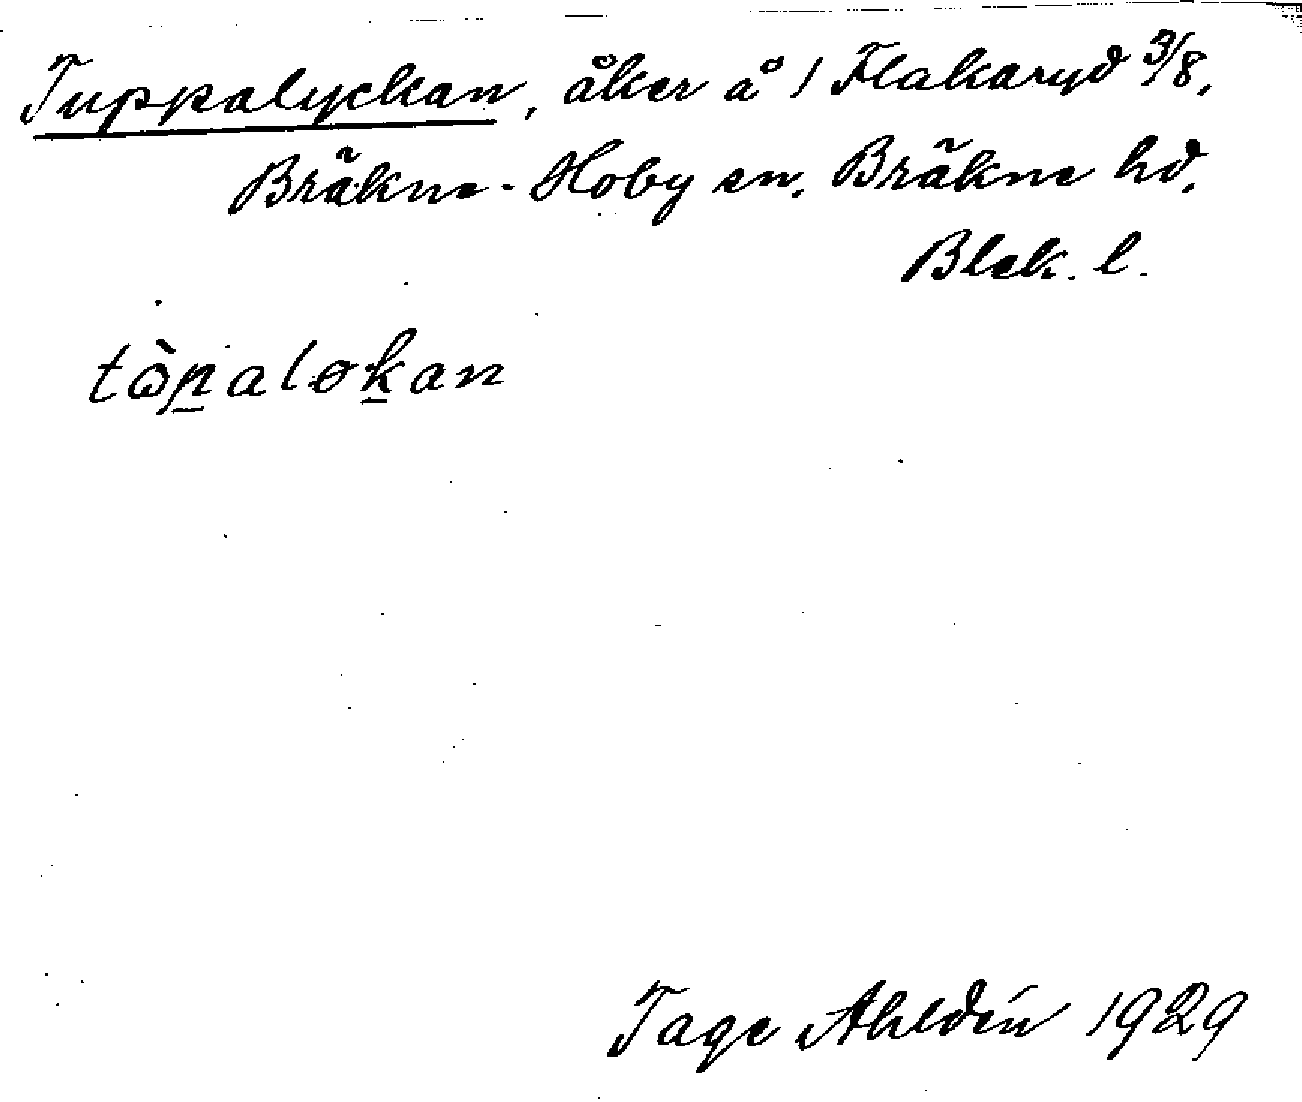 Tuppalyckan, åker å 1 Flakaryd 3/8,
Bräkne-Hoby sn. Bräkne hd.
Blek. l.
tὼp̲aløk̲an
Tage Ahldén 1929